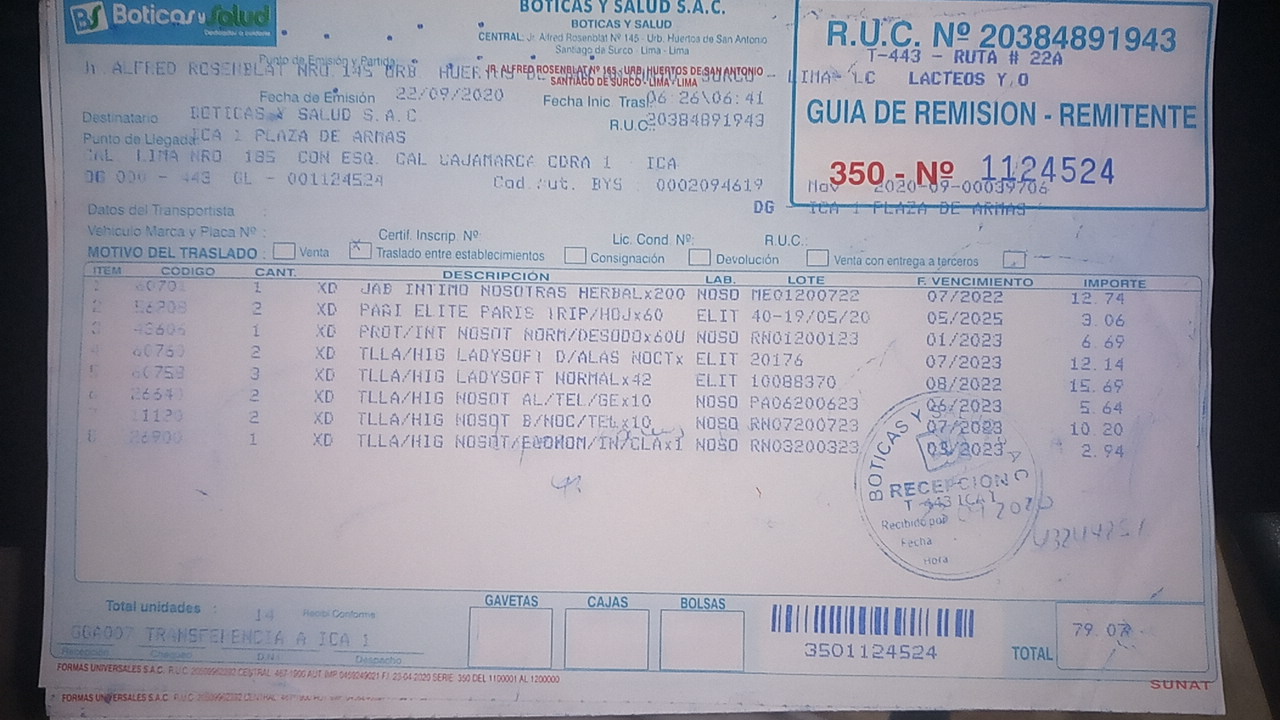 BS Boticas y Salud
BOTICAS Y SALUD S.A.C.
BOTICAS Y SALUD
CENTRAL: Jr. Alfred Rosenblat Nº 145 - Urb. Huertos de San Antonio
Santiago de Surco - Lima - Lima
R.U.C. Nº 20384891943
T-443 - RUTA # 22A
LACTEOS Y,O
GUIA DE REMISION - REMITENTE
350 - Nº 1124524
Nav 2020-09-00039706
DG - ICA 1 PLAZA DE ARMAS
Punto de Emisión y Partida
Jr ALFRED ROSENBLAT NRO 145 URB. HUERTOS DE SAN ANTONIO SURCO - LIMA- LC
JR. ALFRED ROSENBLAT Nº 145 - URB. HUERTOS DE SAN ANTONIO
SANTIAGO DE SURCO - LIMA - LIMA
Fecha de Emisión 22/09/2020 Fecha Inic. Tras. 06 26\06:41
Destinatario BOTICAS Y SALUD S.A.C. R.U.C. 20384891943
Punto de Llegada ICA 1 PLAZA DE ARMAS
CAL LIMA NRO 185 CON ESQ. CAL CAJAMARCA CDRA 1 - ICA
DG 000 - 443 GL - 001124524 Cod.Aut. BYS : 0002094619
Datos del Transportista :
Vehiculo Marca y Placa Nº : Certif. Inscrip. Nº: Lic. Cond. Nº: R.U.C.:
MOTIVO DEL TRASLADO : Venta X Traslado entre establecimientos Consignación Devolución Venta con entrega a terceros
ITEM CÓDIGO CANT. DESCRIPCIÓN LAB. LOTE F. VENCIMIENTO IMPORTE
1 60701 1 XD JAB INTIMO NOSOTRAS HERBALx200 NOSO ME01200722 07/2022 12.74
2 56208 2 XD PARI ELITE PARIS TRIP/HOJx60 ELIT 40-19/05/20 05/2025 3.06
3 43606 1 XD PROT/INT NOSOT NORM/DESODOx60U NOSO RN01200123 01/2023 6.69
4 60760 2 XD TLLA/HIG LADYSOFT D/ALAS NOCTx ELIT 20176 07/2023 12.14
5 60758 3 XD TLLA/HIG LADYSOFT NORMALx42 ELIT 10088370 08/2022 15.69
6 26640 2 XD TLLA/HIG NOSOT AL/TEL/GEx10 NOSO PA06200623 06/2023 5.64
7 11120 2 XD TLLA/HIG NOSOT B/NOC/TELx10 NOSO RN07200723 07/2023 10.20
8 26900 1 XD TLLA/HIG NOSOT/ECONOM/IN/CLAx1 NOSO RN03200323 03/2023 2.94
BOTICAS Y S.A.C
RECEPCION
T-443 ICA 1
Recibido por
Fecha
Hora
43244251
Total unidades : 14 Recibí Conforme
GGA007 TRANSFERENCIA A ICA 1
Recepción Chequeo D.N.I. Despacho
GAVETAS CAJAS BOLSAS
3501124524
TOTAL 79.07
FORMAS UNIVERSALES S.A.C. R.U.C. CENTRAL: 467-1900 AUT. IMP. 0459249021 F.I. 23-04-2020 SERIE 350 DEL 1100001 AL 1200000
SUNAT
FORMAS UNIVERSALES S.A.C.